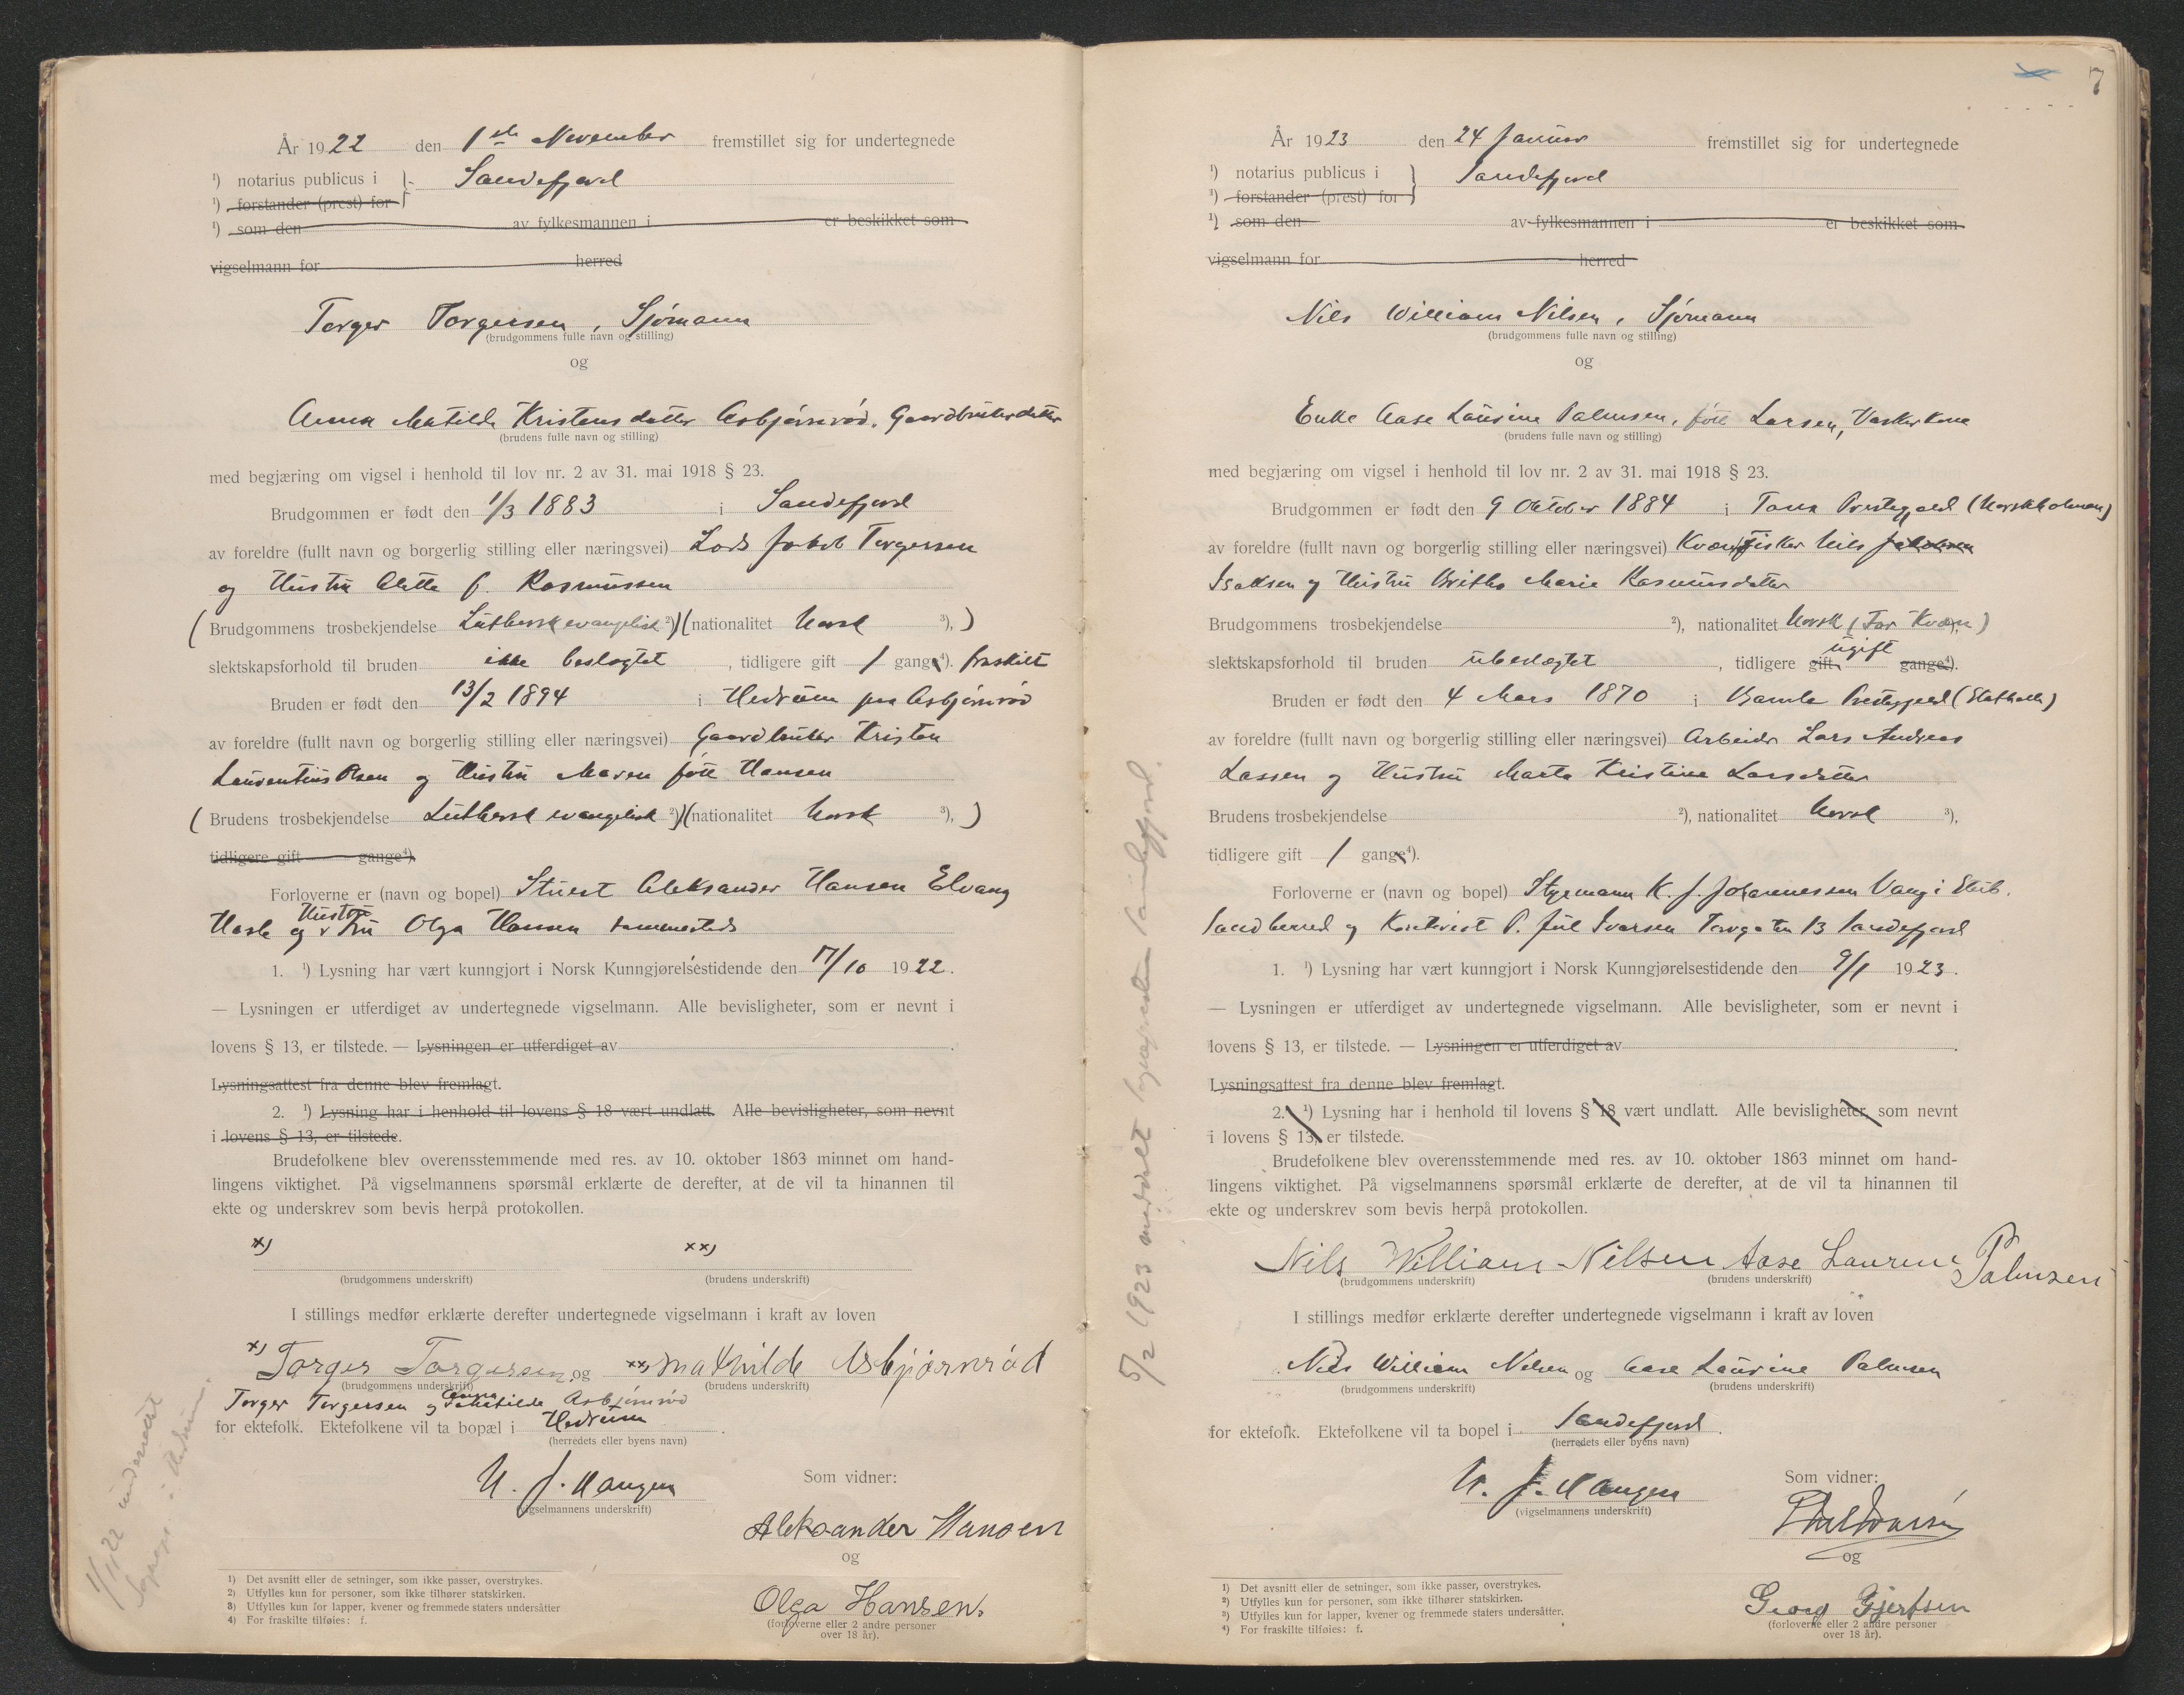 År 1922 den 1ste November fremstillet sig for undertegnede
¹) notarius publicus i Sandefjord
¹) forstander (prest) for
¹) som den av fylkesmannen i er beskikket som
vigselmann for herred
Torger Torgersen, Sjømann
(brudgommens fulle navn og stilling)
og
Anna Matilde Kristensdatter Asbjørnrød, Gaardbrukerdatter
(brudens fulle navn og stilling)
med begjæring om vigsel i henhold til lov nr. 2 av 31. mai 1918 § 23.
Brudgommen er født den 1/3 1883 i Sandefjord
av foreldre (fullt navn og borgerlig stilling eller næringsvei) Lods Jakob Torgersen
og Hustru Alette f. Rasmussen
(Brudgommens trosbekjendelse Luthersk evangelisk ²))(nationalitet Norsk ³),)
slektskapsforhold til bruden ikke beslægtet, tidligere gift 1 gang⁴). fraskilt
Bruden er født den 13/2 1894 i Hedrum paa Asbjørnrød
av foreldre (fullt navn og borgerlig stilling eller næringsvei) Gaardbruker Kristen
Laurentius Olsen og Hustru Maren født Hansen
(Brudens trosbekjendelse Luthersk evangelisk ²))(nationalitet Norsk ³),)
tidligere gift gange⁴).
Forloverne er (navn og bopel) Stuert Aleksander Hansen Elvang
Hasle og Hustru Olga Hansen sammesteds
1. ¹) Lysning har vært kunngjort i Norsk Kunngjørelsestidende den 17/10 1922.
— Lysningen er utferdiget av undertegnede vigselmann. Alle bevisligheter, som er nevnt i
lovens § 13, er tilstede. — Lysningen er utferdiget av
Lysningsattest fra denne blev fremlagt.
2. ¹) Lysning har i henhold til lovens § 18 vært undlatt. Alle bevisligheter, som nevnt
i lovens § 13, er tilstede.
Brudefolkene blev overensstemmende med res. av 10. oktober 1863 minnet om hand-
lingens viktighet. På vigselmannens spørsmål erklærte de derefter, at de vil ta hinannen til
ekte og underskrev som bevis herpå protokollen.
x) xx)
(brudgommens underskrift) (brudens underskrift)
I stillings medfør erklærte derefter undertegnede vigselmann i kraft av loven
x) Torger Torgersen og xx) Mathilde Asbjørnrød
(brudgommens underskrift) (brudens underskrift)
Torger Torgersen og Anna Matilde Asbjørnrød
for ektefolk. Ektefolkene vil ta bopæl i Hedrum
(herredets eller byens navn)
Som vidner:
(vigselmannens underskrift)
Aleksander Hansen
og
Olga Hansen.
(forloverne eller 2 andre personer
over 18 år).
1) Det avsnitt eller de setninger, som ikke passer, overstrykes.
2) Utfylles kun for personer, som ikke tilhører statskirken.
3) Utfylles kun for lapper, kvener og fremmede staters undersåtter
4) For fraskilte tilføies: f.
7
År 1923 den 24 Januar fremstillet sig for undertegnede
¹) notarius publicus i Sandefjord
¹) forstander (prest) for
¹) som den av fylkesmannen i er beskikket som
vigselmann for herred
Nils William Nilsen, Sjømann
(brudgommens fulle navn og stilling)
og
Enke Aase Laurine Palmsen, født Larsen, Vaskerkone
(brudens fulle navn og stilling)
med begjæring om vigsel i henhold til lov nr. 2 av 31. mai 1918 § 23.
Brudgommen er født den 9 Oktober 1884 i Tana Prestegjeld (Norskholmen)
av foreldre (fullt navn og borgerlig stilling eller næringsvei) Kvæn fisker Nils
Isaksen og Hustru Britha Marie Rasmusdatter
Brudgommens trosbekjendelse ²), nationalitet Norsk (Far Kvæn)
slektskapsforhold til bruden ubeslægtet, tidligere gift ugift gange⁴).
Bruden er født den 4 Mars 1870 i Bamle Prestegjeld (Stathelle)
av foreldre (fullt navn og borgerlig stilling eller næringsvei) Arbeider Lars Andreas
Lassen og Hustru Marte Kristine Larsdatter
Brudens trosbekjendelse ²), nationalitet Norsk ³),
tidligere gift 1 gange⁴).
Forloverne er (navn og bopel) Styrmann K. J. Johannessen Vang i
Sandherred og P. Jul Ivarsen Torvgaten 13 Sandefjord
1. ¹) Lysning har vært kunngjort i Norsk Kunngjørelsestidende den 9/1 1923.
— Lysningen er utferdiget av undertegnede vigselmann. Alle bevisligheter, som er nevnt i
lovens § 13, er tilstede. — Lysningen er utferdiget av
Lysningsattest fra denne blev fremlagt.
2. ¹) Lysning har i henhold til lovens § 18 vært undlatt. Alle bevisligheter, som nevnt
i lovens § 13, er tilstede.
Brudefolkene blev overensstemmende med res. av 10. oktober 1863 minnet om hand-
lingens viktighet. På vigselmannens spørsmål erklærte de derefter, at de vil ta hinannen til
ekte og underskrev som bevis herpå protokollen.
Nils William Nilsen Aase Laurine Palmsen
(brudgommens underskrift) (brudens underskrift)
I stillings medfør erklærte derefter undertegnede vigselmann i kraft av loven
Nils William Nilsen og Aase Laurine Palmsen
(brudgommens underskrift) (brudens underskrift)
for ektefolk. Ektefolkene vil ta bopel i Sandefjord.
(herredets eller byens navn)
Som vidner:
(vigselmannens underskrift)
og
Georg Gjertsen
(forloverne eller 2 andre personer
over 18 år).
1) Det avsnitt eller de setninger, som ikke passer, overstrykes.
2) Utfylles kun for personer, som ikke tilhører statskirken.
3) Utfylles kun for lapper, kvener og fremmede staters undersåtter.
4) For fraskilte tilføies: f.
5/2 1923 meddelt sognepresten Sandefjord.